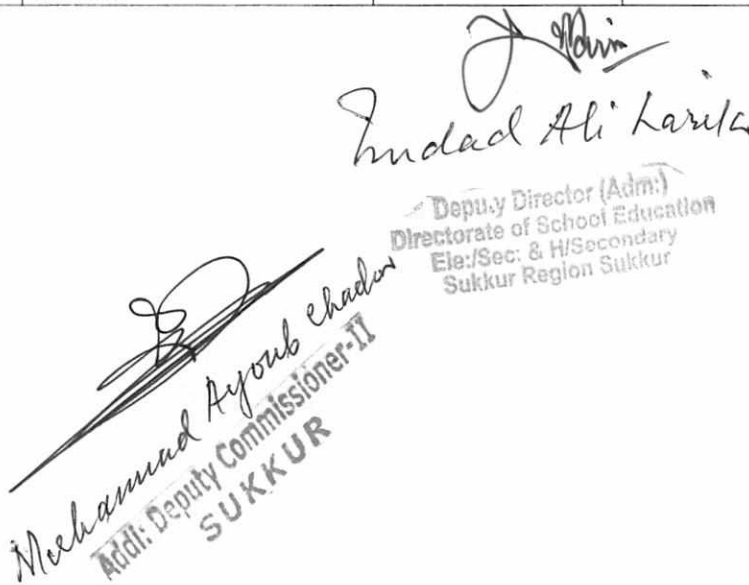 Imdad Ali
Deputy Director (Adm:)
Directorate of School Education
Ele:/Sec: & H/Secondary
Sukkur Region Sukkur
Muhammad Ayoub Chadar
Addl: Deputy Commissioner-II
SUKKUR